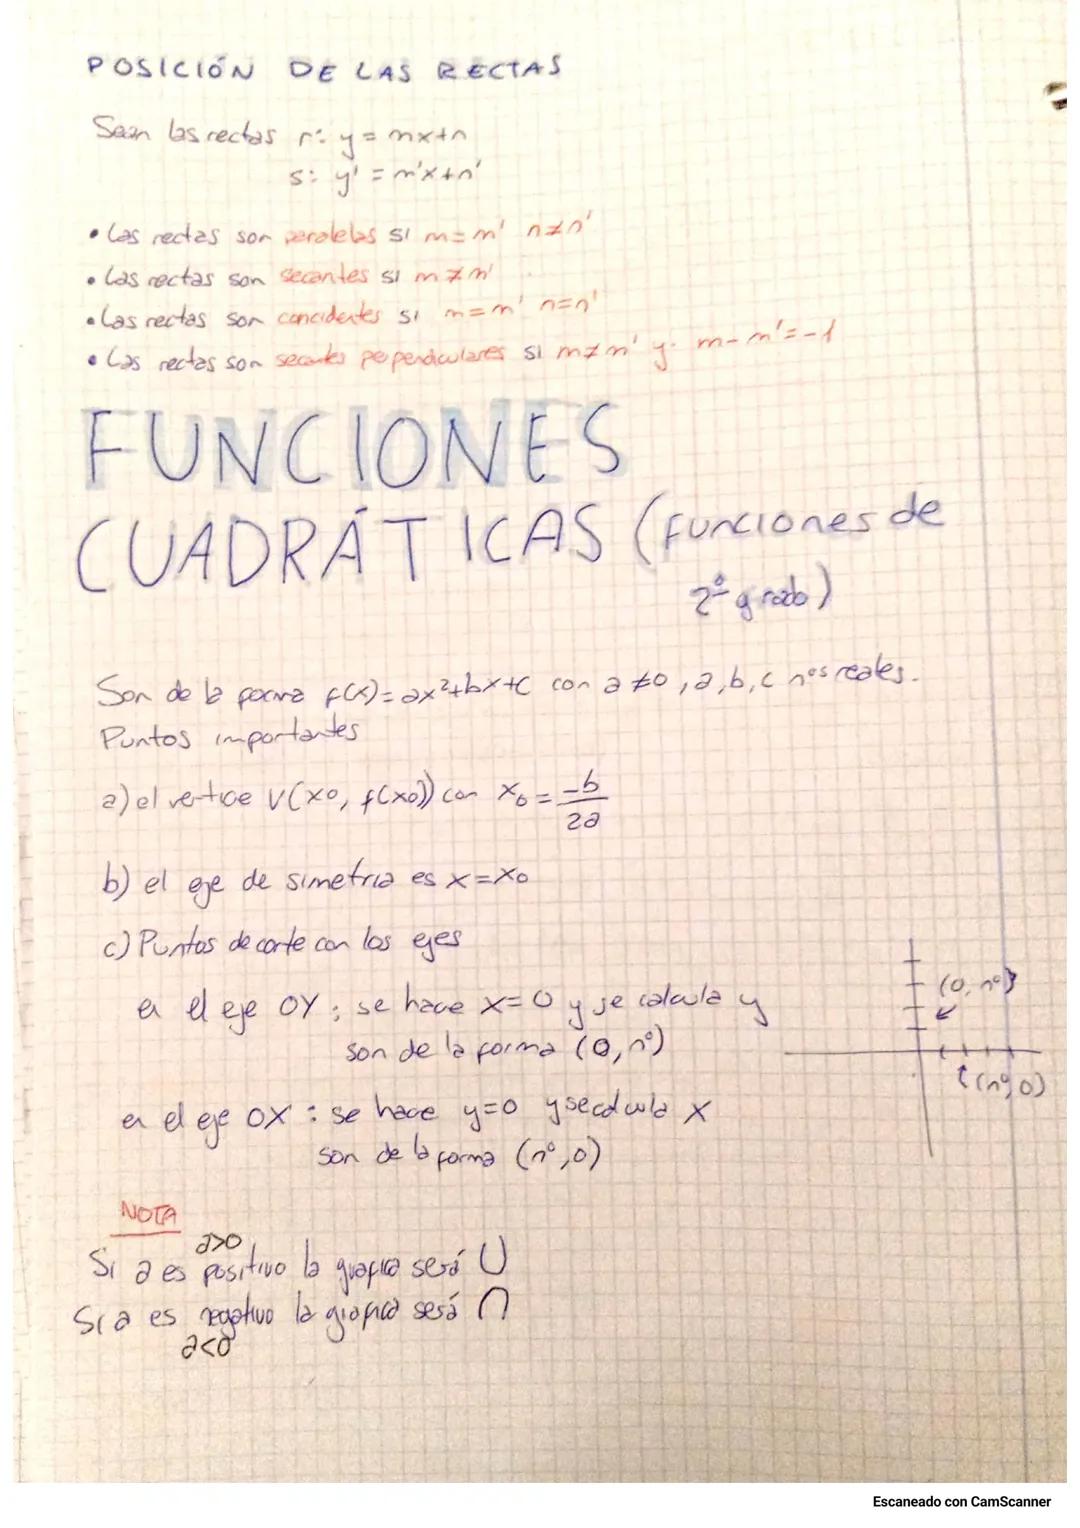 POSICIÓN DE LAS RECTAS
Sean las rectas r: y = mx+n
s: y' = m'x+n'
• Las rectas son paralelas si m=m' n≠n'
• Las rectas son secantes si m≠m'
• Las rectas son concidentes si m=m' n=n'
• Las rectas son secantes perpendiculares si m≠m' y m-m'=-1
FUNCIONES
CUADRÁTICAS (funciones de
2º grado)
Son de la forma f(x)=ax²+bx+c con a≠0, a, b, c nºs reales.
Puntos importantes
a) el vertice V(x0, f(x0)) con x0 = -b/2a
b) el eje de simetria es x=x0
c) Puntos de corte con los ejes
en el eje OY: se hace x=0 y se calcula y
son de la forma (0, nº)
(0, nº)
en el eje OX: se hace y=0 y se calcula x
(nº, 0)
son de la forma (nº, 0)
NOTA
a>0
Si a es positivo la grafica será U
Si a es negativo la grafica será ∩
a<0
Escaneado con CamScanner